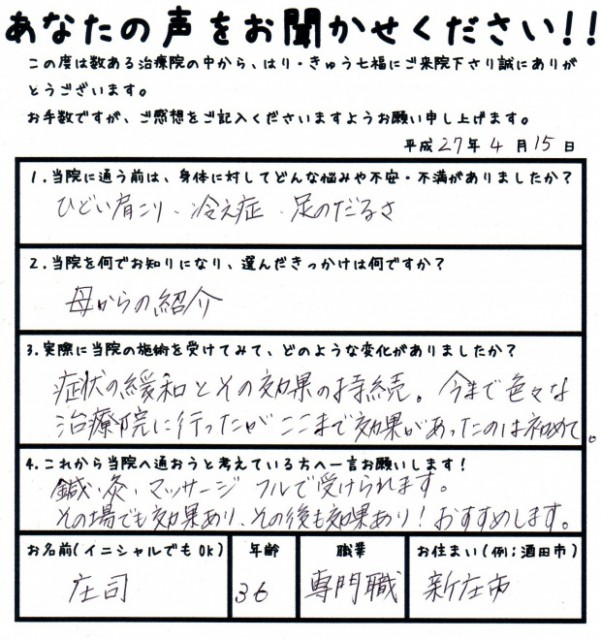 あなたの声をお聞かせください!!
この度は数ある治療院の中から、はり・きゅう七福にご来院下さり誠にありが
とうございます。
お手数ですが、ご感想をご記入くださいますようお願い申し上げます。
平成27年4月15日
1.当院に通う前は、身体に対してどんな悩みや不安・不満がありましたか?
ひどい肩こり、冷え症、足のだるさ
2.当院を何でお知りになり、選んだきっかけは何ですか?
母からの紹介
3.実際に当院の施術を受けてみて、どのような変化がありましたか?
症状の緩和とその効果の持続。今まで色々な
治療院に行ったがここまで効果があったのは初めて。
4.これから当院へ通おうと考えている方へ一言お願いします!
鍼・灸・マッサージ フルで受けられます。
その場でも効果あり、その後も効果あり!おすすめします。
お名前(イニシャルでもOK) 年齢 職業 お住まい(例;酒田市)
庄司 36 専門職 新庄市